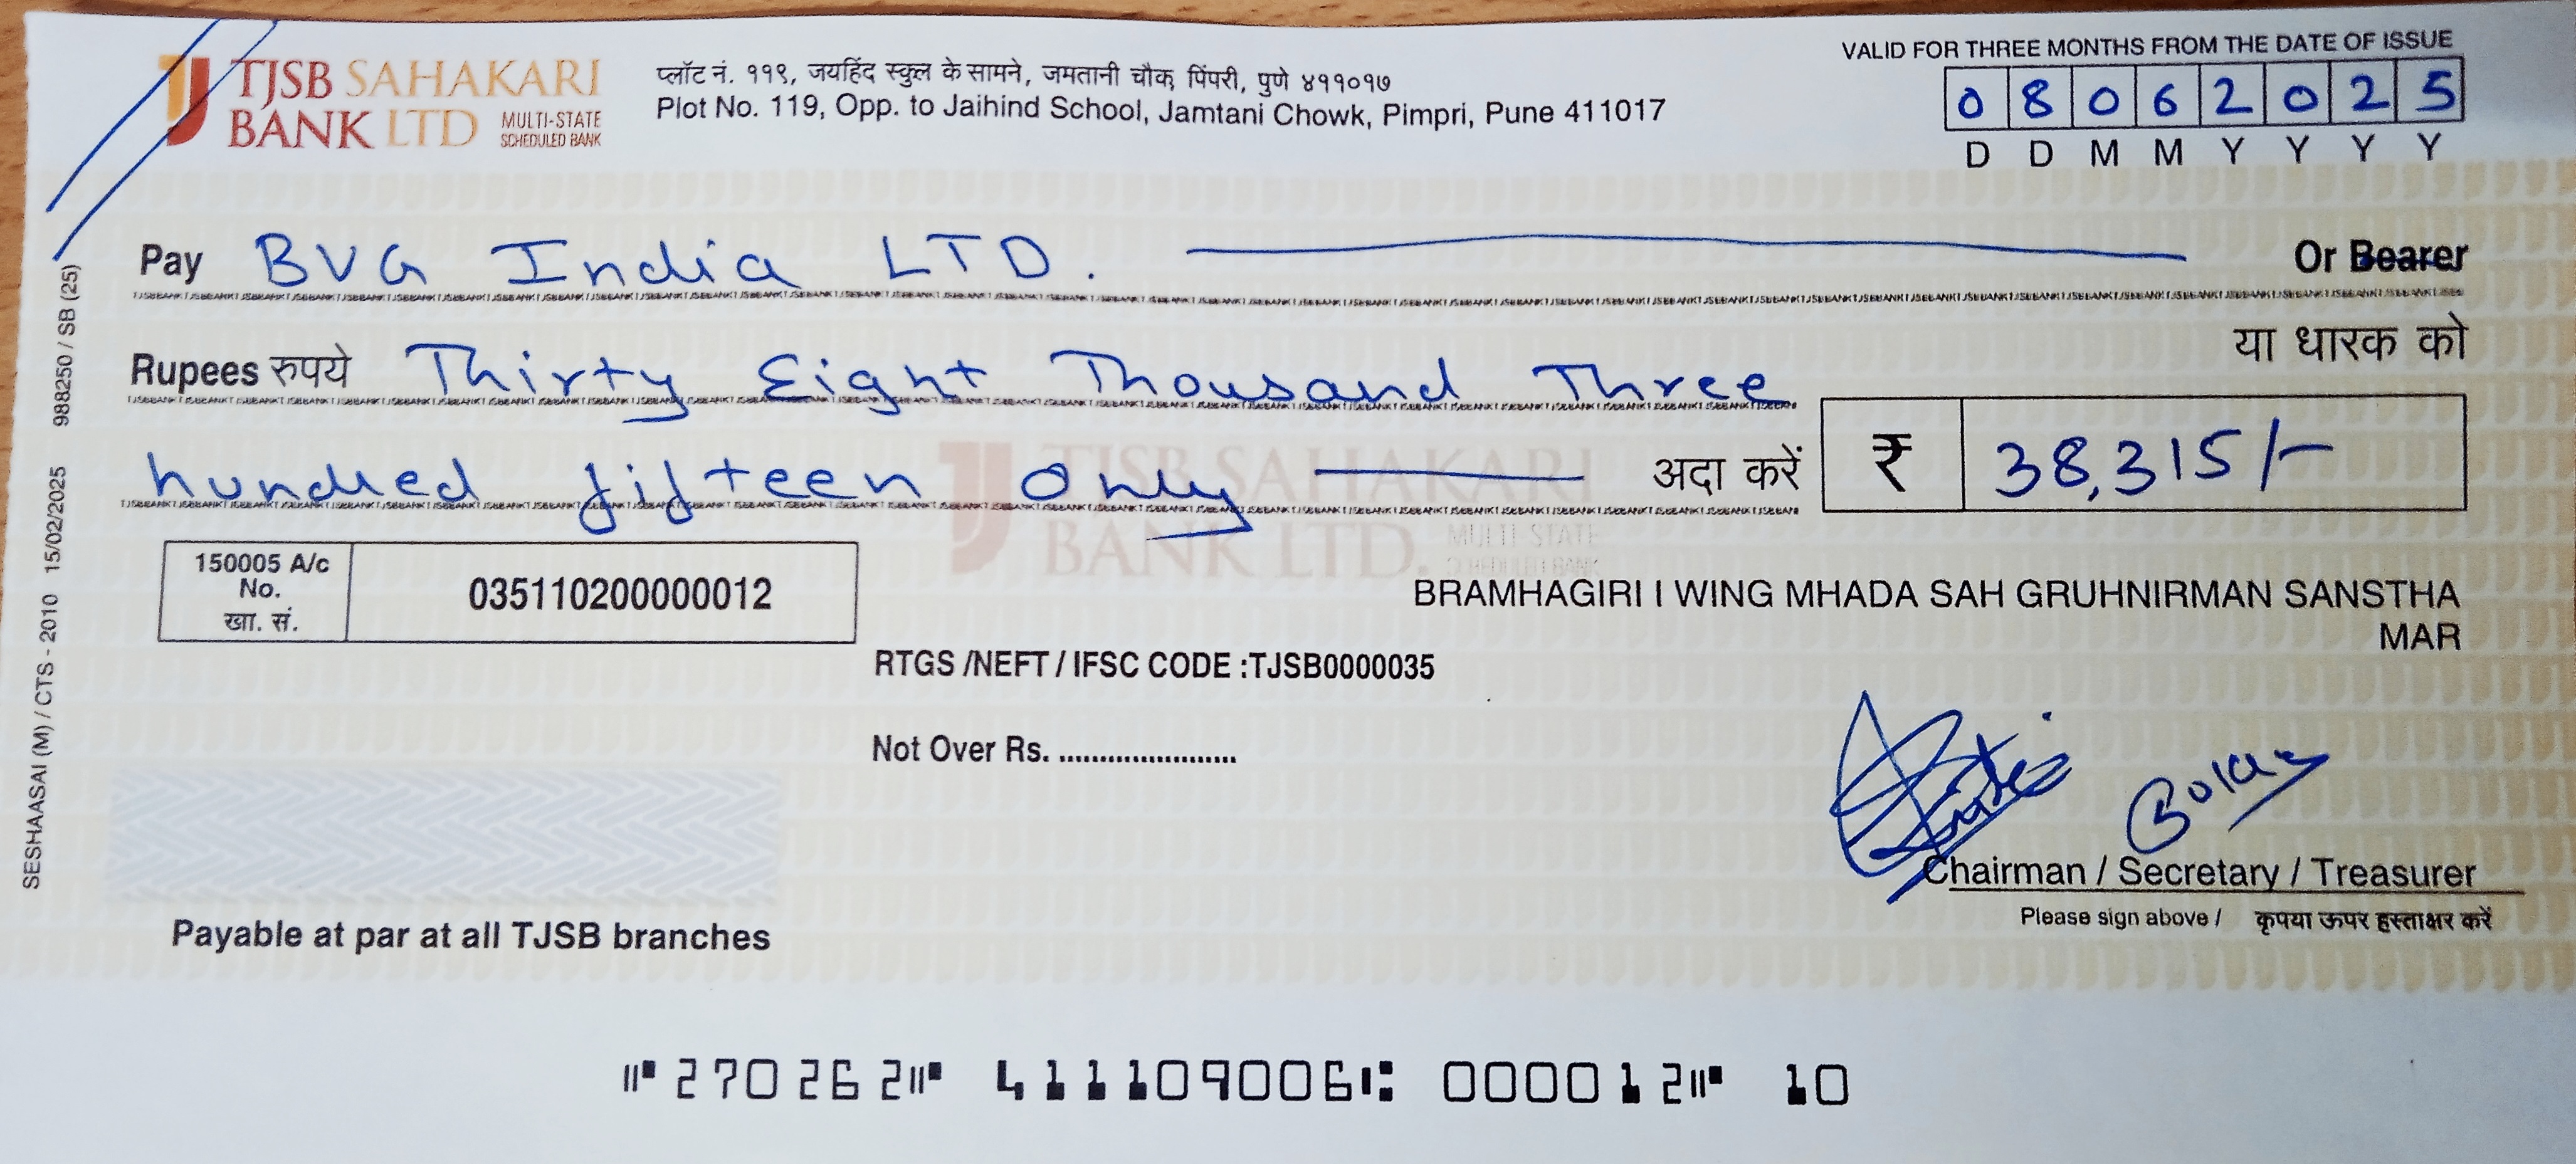 TJSB SAHAKARI
BANK LTD MULTI-STATE
SCHEDULED BANK
प्लॉट नं. ११९, जयहिंद स्कुल के सामने, जमतानी चौक, पिंपरी, पुणे ४११०१७
Plot No. 119, Opp. to Jaihind School, Jamtani Chowk, Pimpri, Pune 411017
VALID FOR THREE MONTHS FROM THE DATE OF ISSUE
0 8 0 6 2 0 2 5
D D M M Y Y Y Y
Pay BVG India LTD. Or Bearer
या धारक को
Rupees रुपये Thirty Eight Thousand Three
hundred fifteen Only अदा करें ₹ 38,315/-
TJSB SAHAKARI
BANK LTD. MULTI-STATE
SCHEDULED BANK
150005 A/c
No.
खा. सं.
035110200000012
BRAMHAGIRI I WING MHADA SAH GRUHNIRMAN SANSTHA
MAR
RTGS /NEFT / IFSC CODE :TJSB0000035
Not Over Rs. .......................
Chairman / Secretary / Treasurer
Please sign above / कृपया ऊपर हस्ताक्षर करें
Payable at par at all TJSB branches
SESHAASAI (M) / CTS - 2010 15/02/2025 988250 / SB (25)
⑈270262⑈ 411109006⑆ 000012⑈ 10